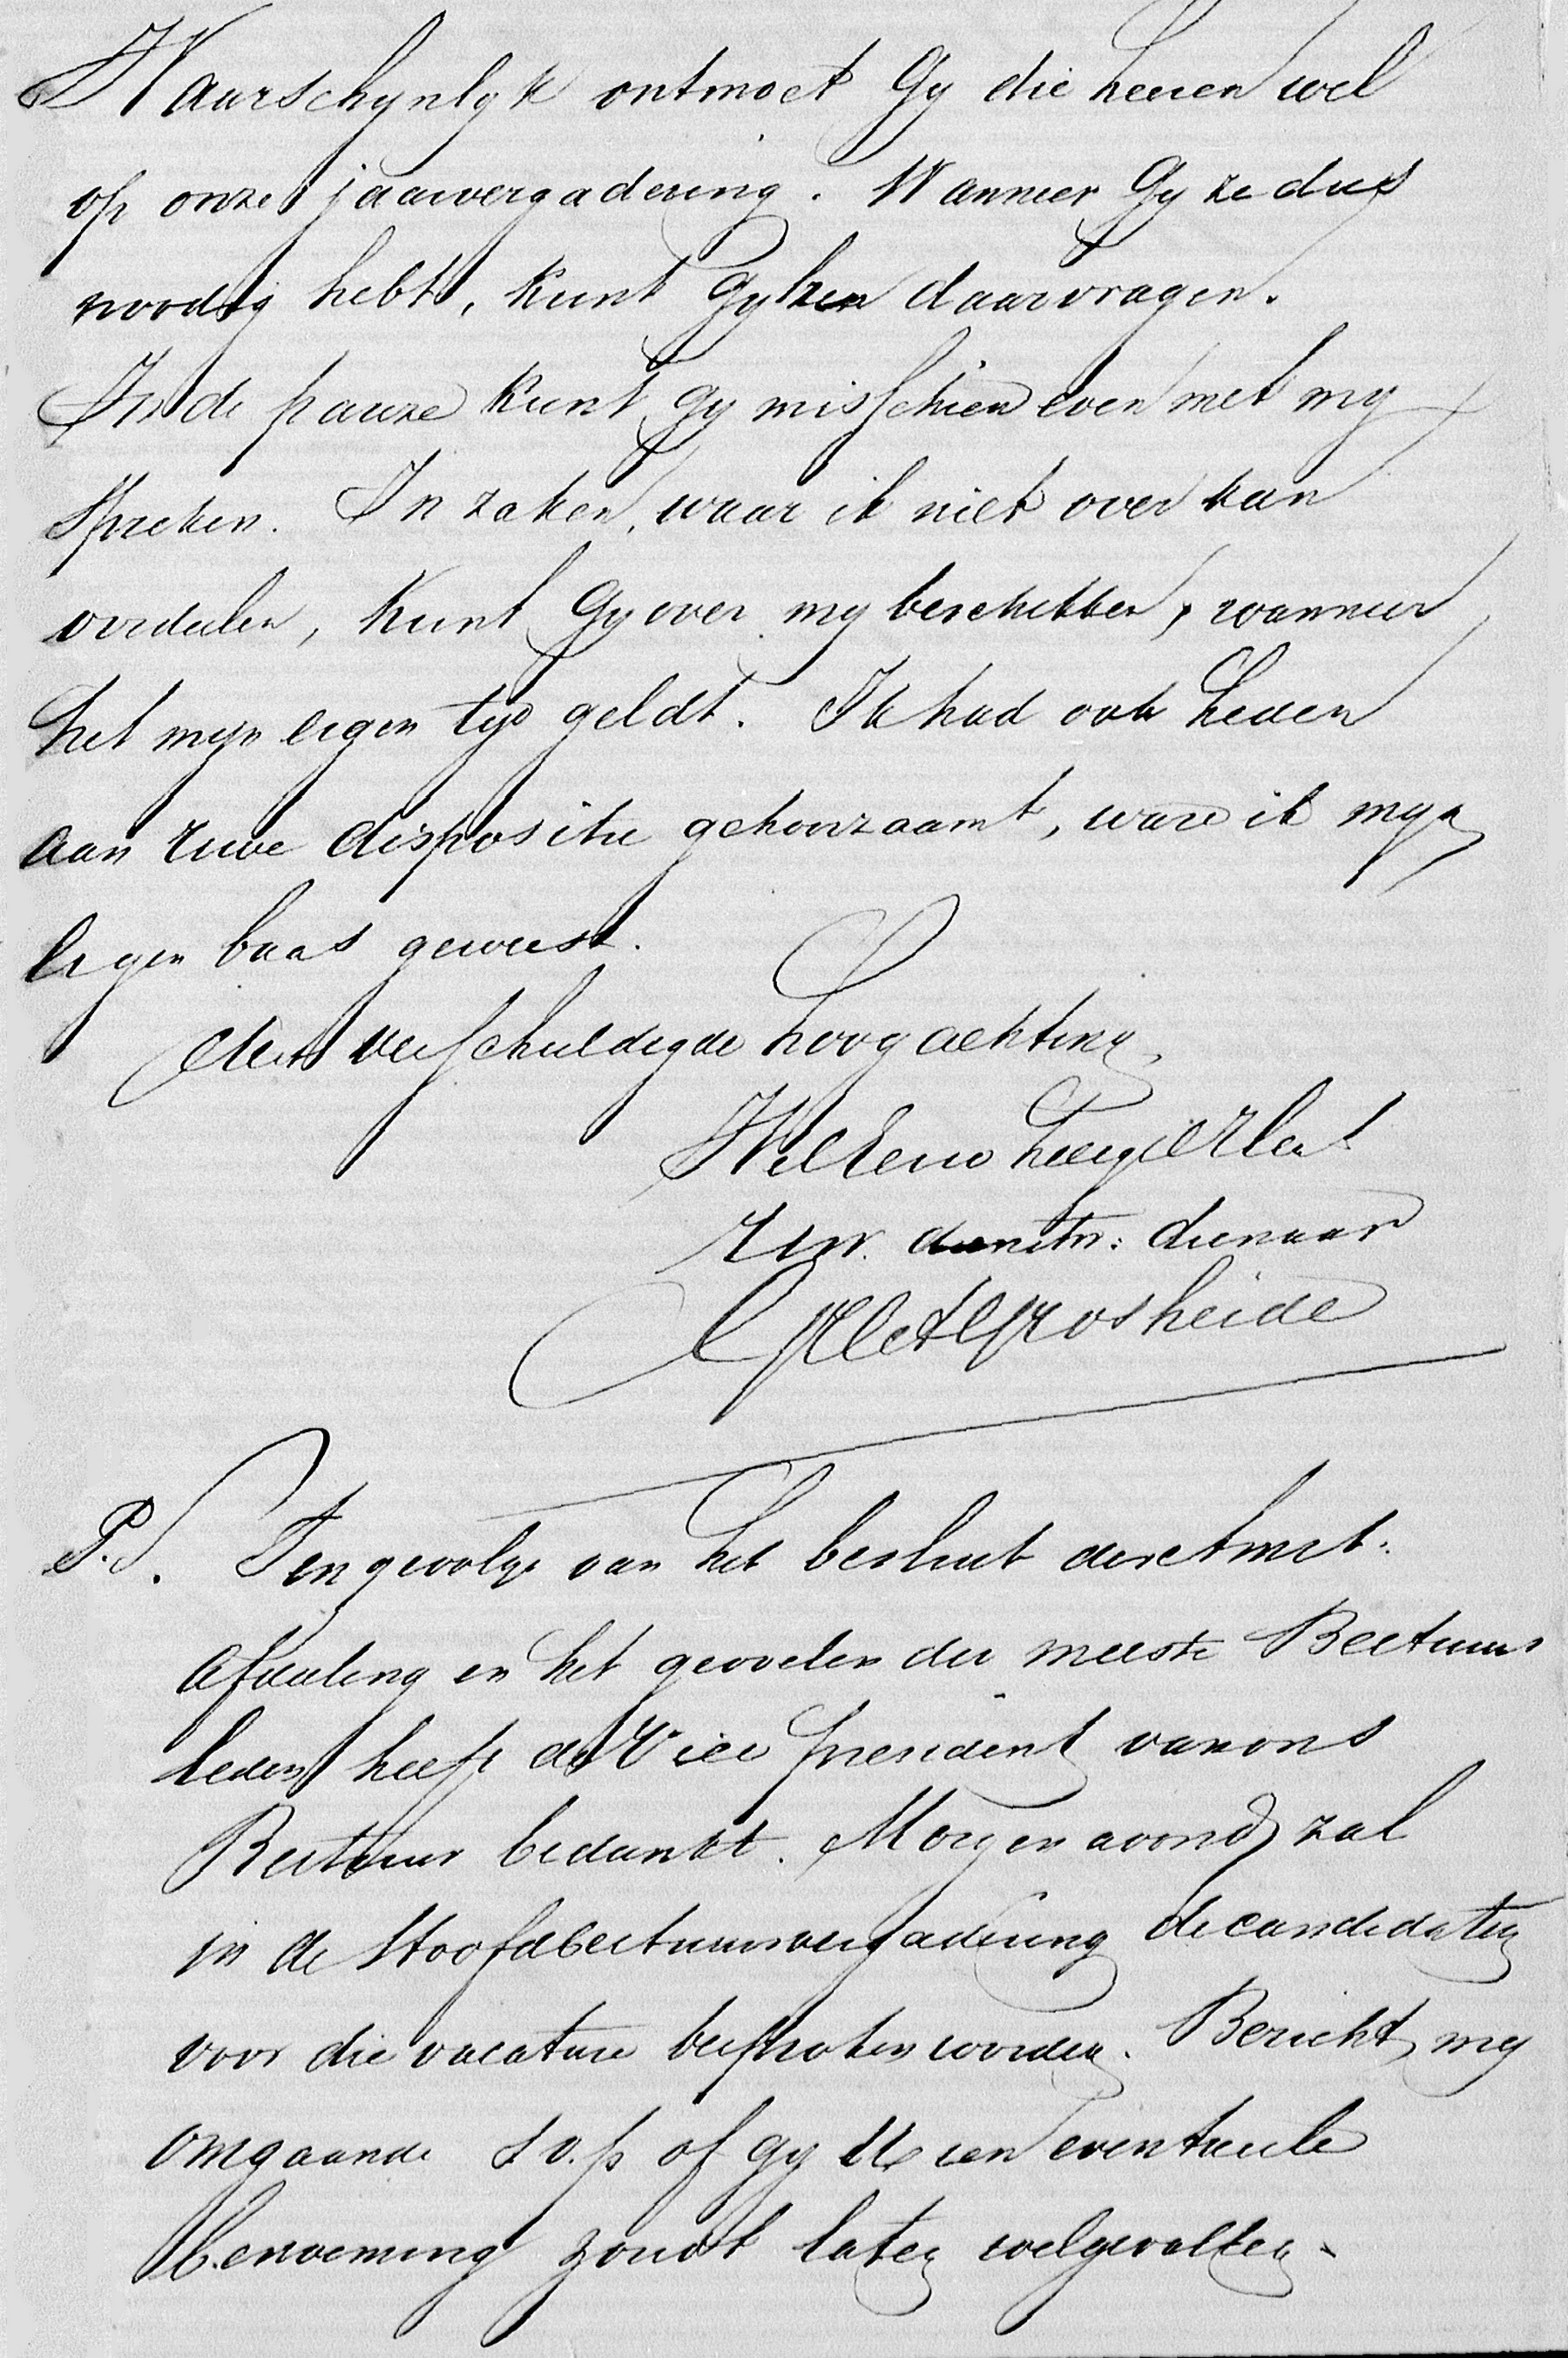 Waarschynlyk ontmoet Gy die heeren wel
op onze jaarvergadering. Wanneer Gy ze dus
noodig hebt, kunt Gy hen daar vragen.
In de pauze kunt Gy misschien even met my
spreken. In zaken, waar ik niet over kan
oordeelen, kunt Gy over my beschikken, wanneer
het myn eigen tyd geldt. Ik had ook heden
aan Uwe dispositie gehoorzaamt, ware ik myn
eigen baas geweest.
Met verschuldigde hoogachting,
WelEerw
Uw. dienstw: dienaar
Grosheide
P.S. Ten gevolge van het besluit der Amst.
Afdeeling en het gevoelen der meeste Bestuurs
leden heeft de Vice President van ons
Bestuur bedankt. Morgen avond zal
in de Hoofdbestuursvergadering de candidaten
voor die vacature besproken worden. Bericht my
omgaande s.v.p of Gy U een eventueele
benoeming zoudt laten welgevallen.